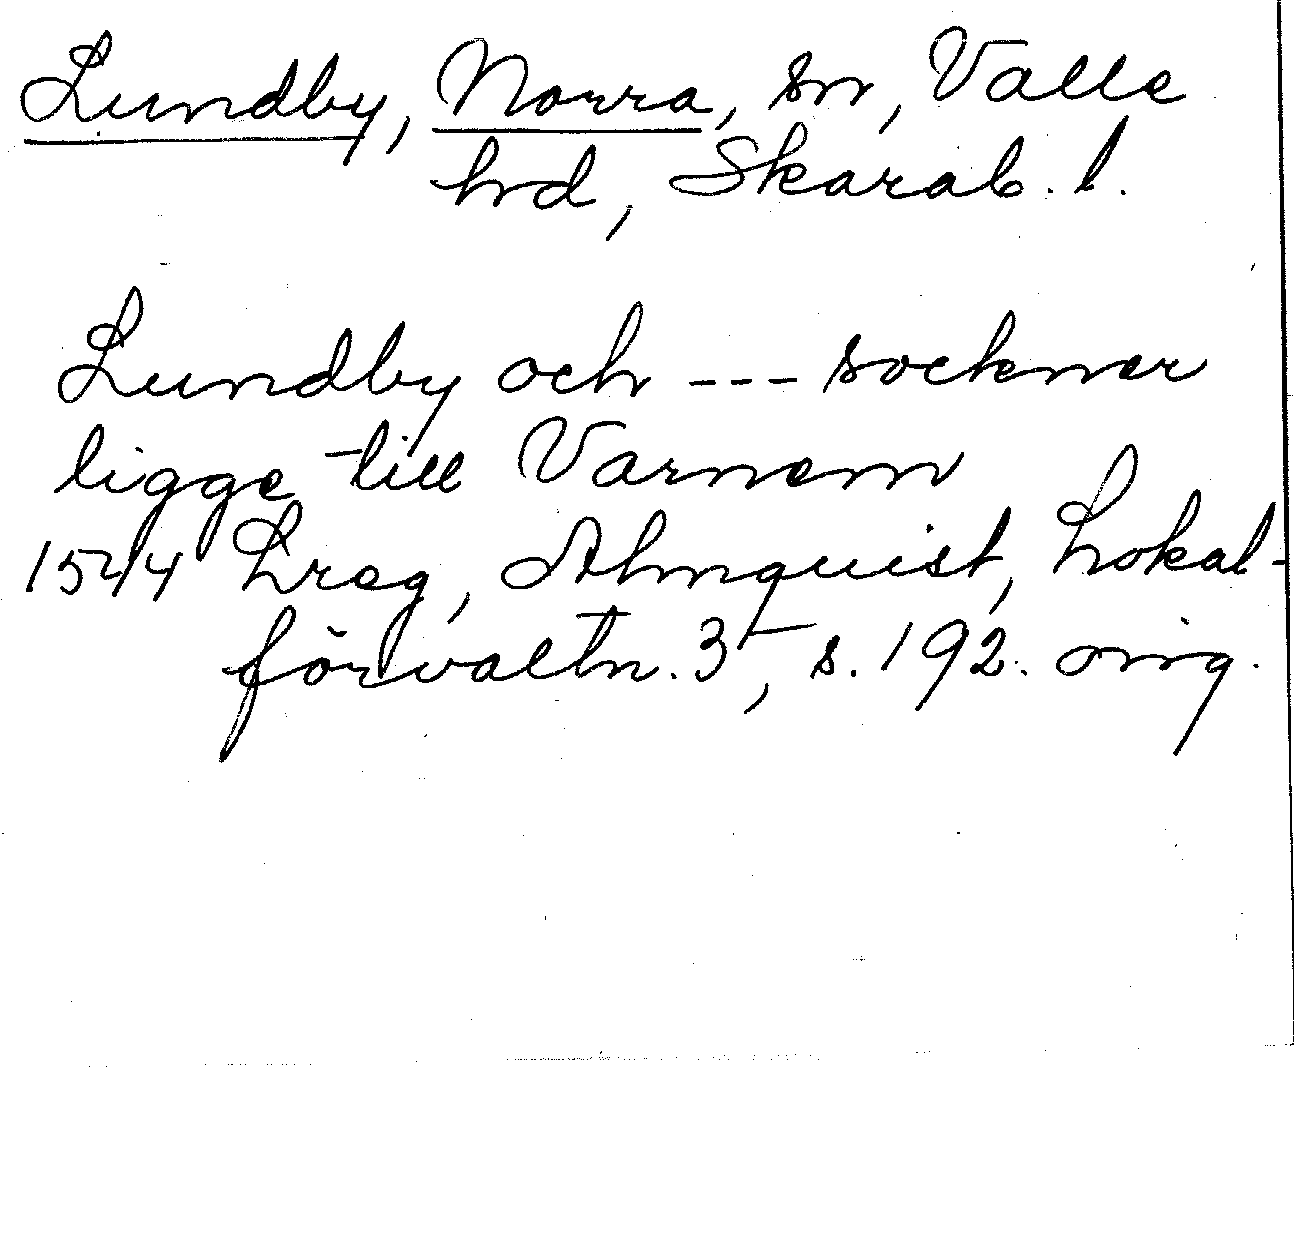 Lundby, Norra, sn, Valle
hd, Skarab. l.
Lundby och --- sockner
ligge till Varnem
1544 Lreg, Almquist, Lokal-
förvaltn. 3, s. 192. orig.